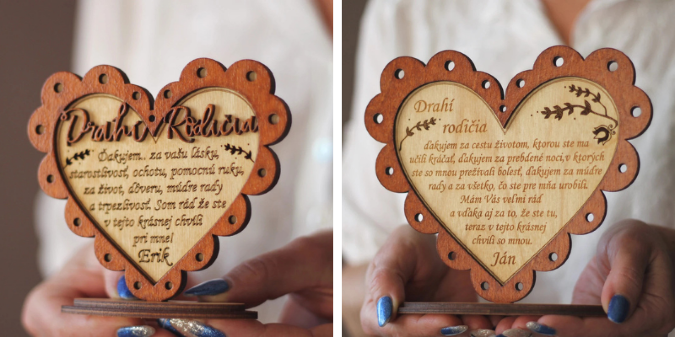 Drahí Rodičia
Ďakujem.. za vašu lásku,
starostlivosť, ochotu, pomocnú ruku,
za život, dôveru, múdre rady
a trpezlivosť. Som rád že ste
v tejto krásnej chvíli
pri mne!
Erik
Drahí
rodičia
ďakujem za cestu životom, ktorou ste ma
učili kráčať, ďakujem za prebdené noci, v ktorých
ste so mnou prežívali bolesť, ďakujem za múdre
rady a za všetko, čo ste pre mňa urobili.
Mám Vás veľmi rád
a vďaka aj za to, že ste tu,
teraz v tejto krásnej
chvíli so mnou.
Ján